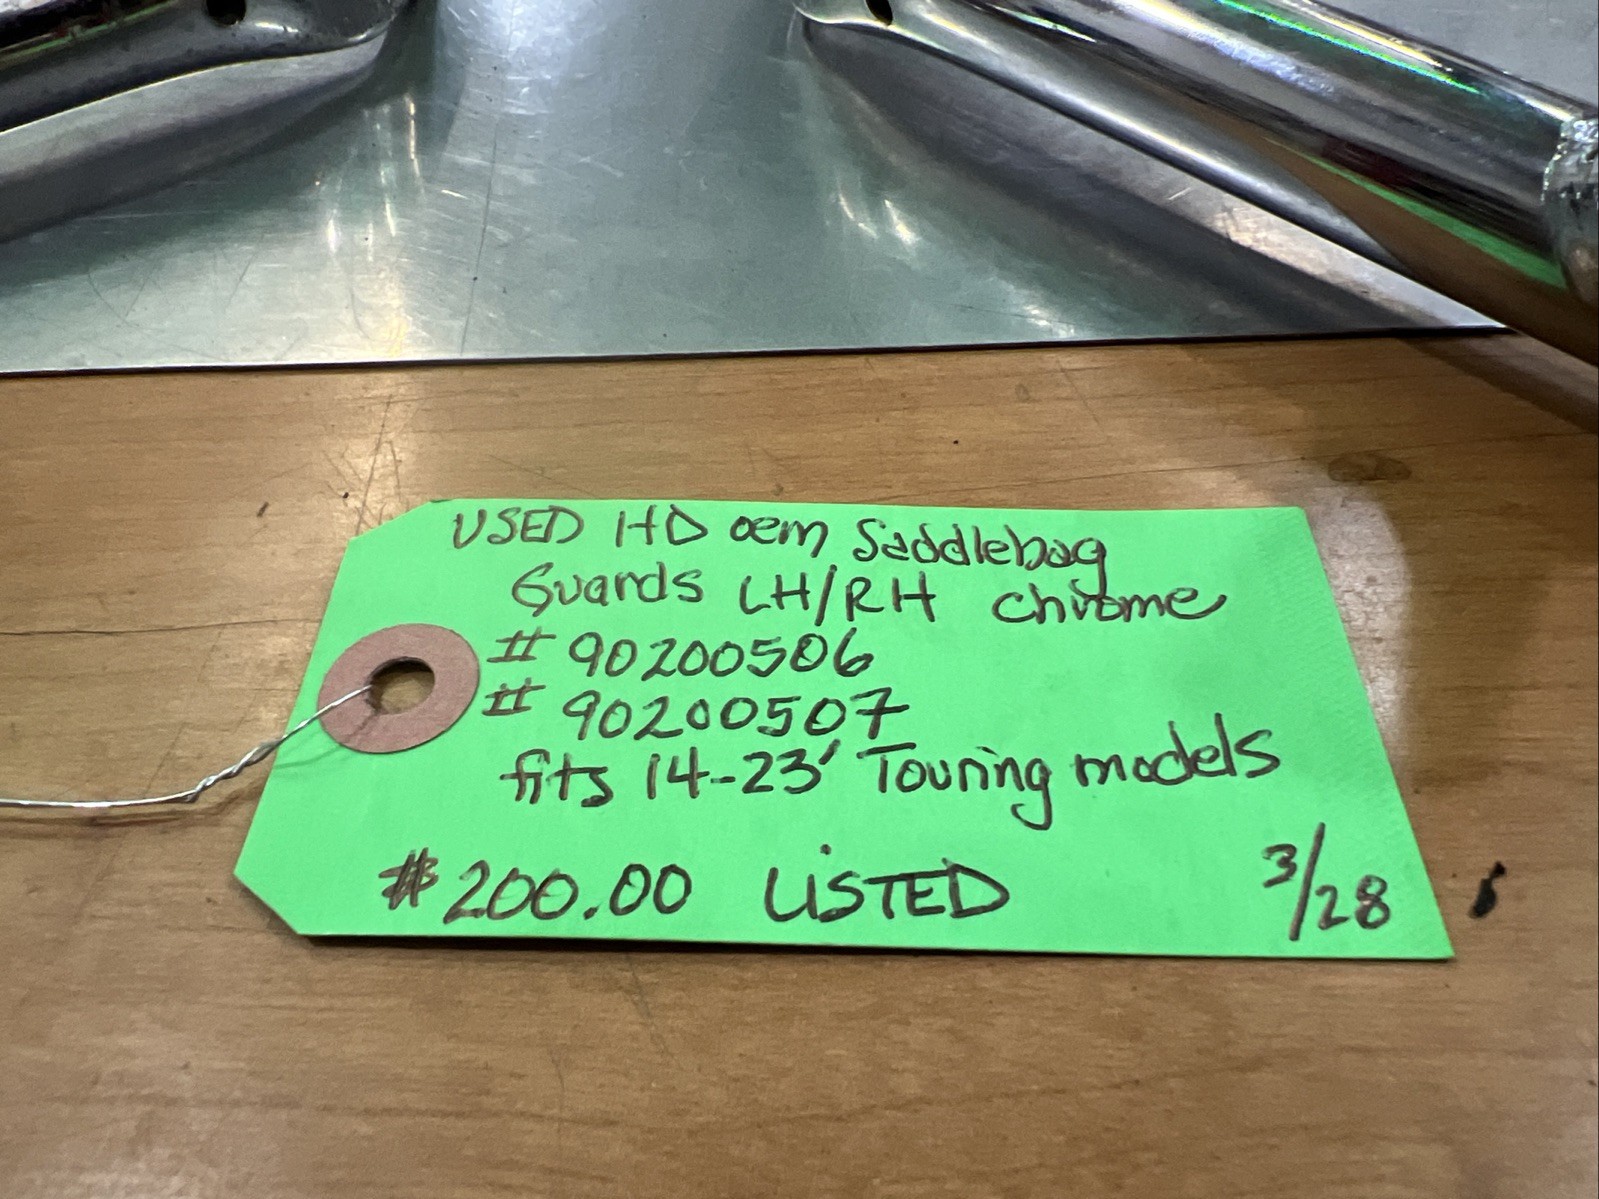 USED HD oem Saddlebag
Guards LH/RH chrome
# 90200506
# 90200507
fits 14-23' Touring models
$200.00 LISTED 3/28